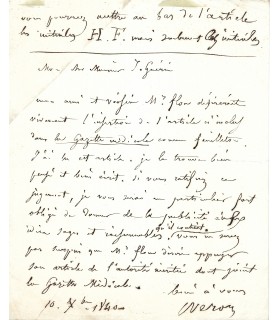 vous pourriez mettre au bas de l'article
les initiales H. F. mais seulement les initiales
Mon cher Monsieur J. Guérin
mon ami et Mr. flon désirerait
vivement l'insertion de l'article
dans la Gazette médicale comme feuilleton.
J'ai lu cet article. je le trouve bien
pensé et bien écrit. si vous ratifiez ce
jugement, je vous serai en particulier fort
obligé de donner de la publicité aux
idées sages et raisonnables qu'il contient. vous ne serez
pas surpris que Mr flon désire appuyer
son article de l'autorité méritée dont jouit
la Gazette Médicale.
tout à vous
10. Xbre 1840. Véron